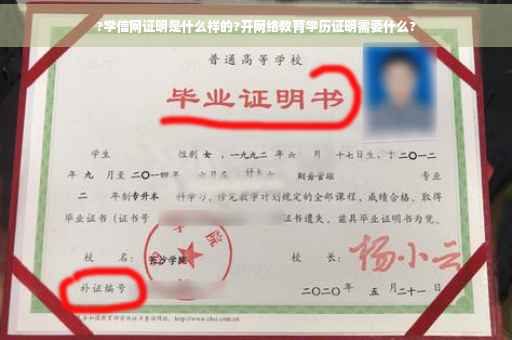 ?学信网证明是什么样的?开网络教育学历证明需要什么?
普通高等学校
毕业证明书
学生 性别 女,一九九二年六 月 十七日生,于二〇一二
年 九 月至二〇一四年 六月在 财务管理 专业
二 年制专升本 科学习,修完教学计划规定的全部课程,成绩合格,取得
毕业证书(证书号 证书遗失,兹具毕业证明书为凭。
校 名: 长沙学院 校 长: 杨小云
补证编号 二〇二〇年 五 月二十一日